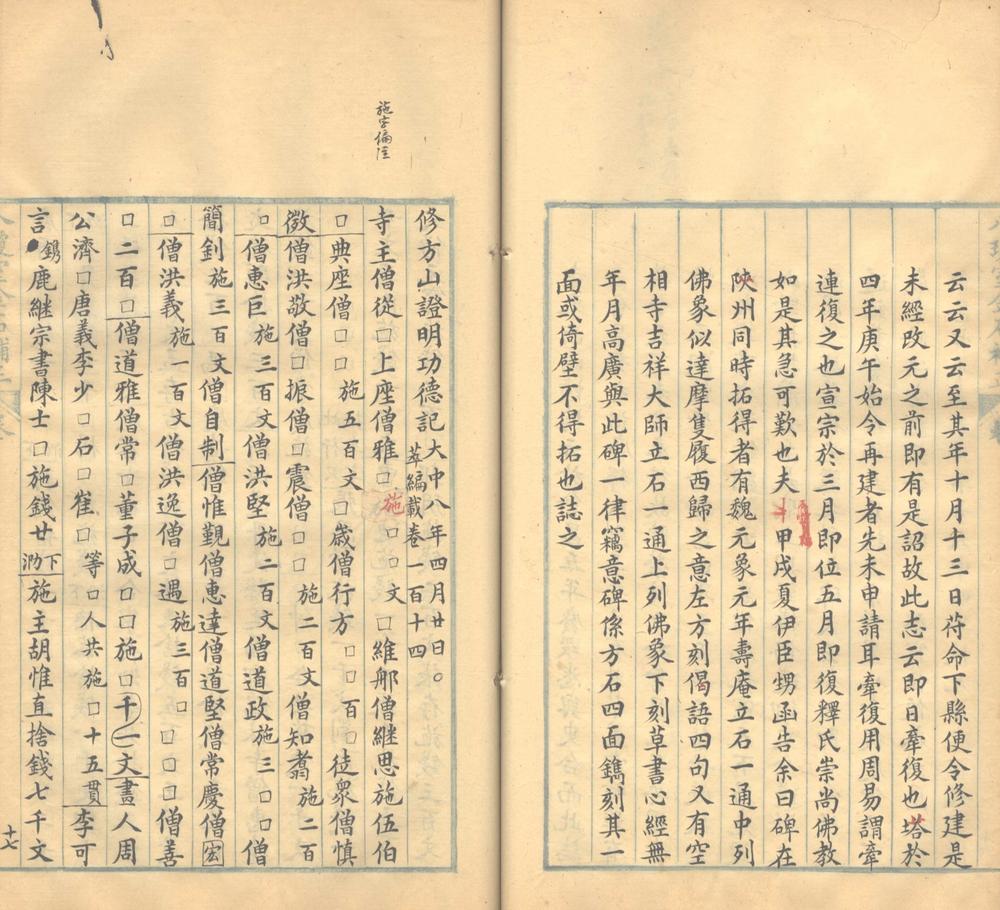 云云又云至其年十月十三日苻命下縣便令修建是
未經改元之前即有是詔故此志云即日牽復也塔於
四年庚午始令再建者先未申請耳牽復用周易謂牽
連復之也宣宗於三月即位五月即復釋氏崇尚佛教
如是其急可歎也夫十甲戌夏伊臣甥函告余曰碑在
陝州同時拓得者有魏元象元年壽庵立石一通中列
佛象似達摩隻履西歸之意左方刻偈語四句又有空
相寺吉祥大師立石一通上列佛象下刻草書心經無
年月高廣與此碑一律竊意碑係方石四面鐫刻其一
面或倚壁不得拓也誌之
施字偏注
修方山證明功德記大中八年四月廿日。萃編載卷一百十四
寺主僧從□上座僧雅□施□□文□維那僧継思施伍伯
□典座僧□□施五百文□嵗僧行方□□百□徒衆僧慎
徵僧洪敬僧□振僧□震僧□□施二百文僧知翥施二百
□僧惠巨施三百文僧洪堅施二百文僧道政施三□□僧
簡釗施三百文僧自制僧惟覲僧惠達僧道堅僧常慶僧宏
□僧洪義施一百文僧洪逸僧□遇施三百□□□□僧善
□二百□僧道雅僧常□董子成□□施□千一文畫人周
公濟□唐義李少□石□崔□等□人共施□十五貫李可
言鐫鹿継宗書陳士□施錢廿下泐施主胡惟直捨錢七千文
十七